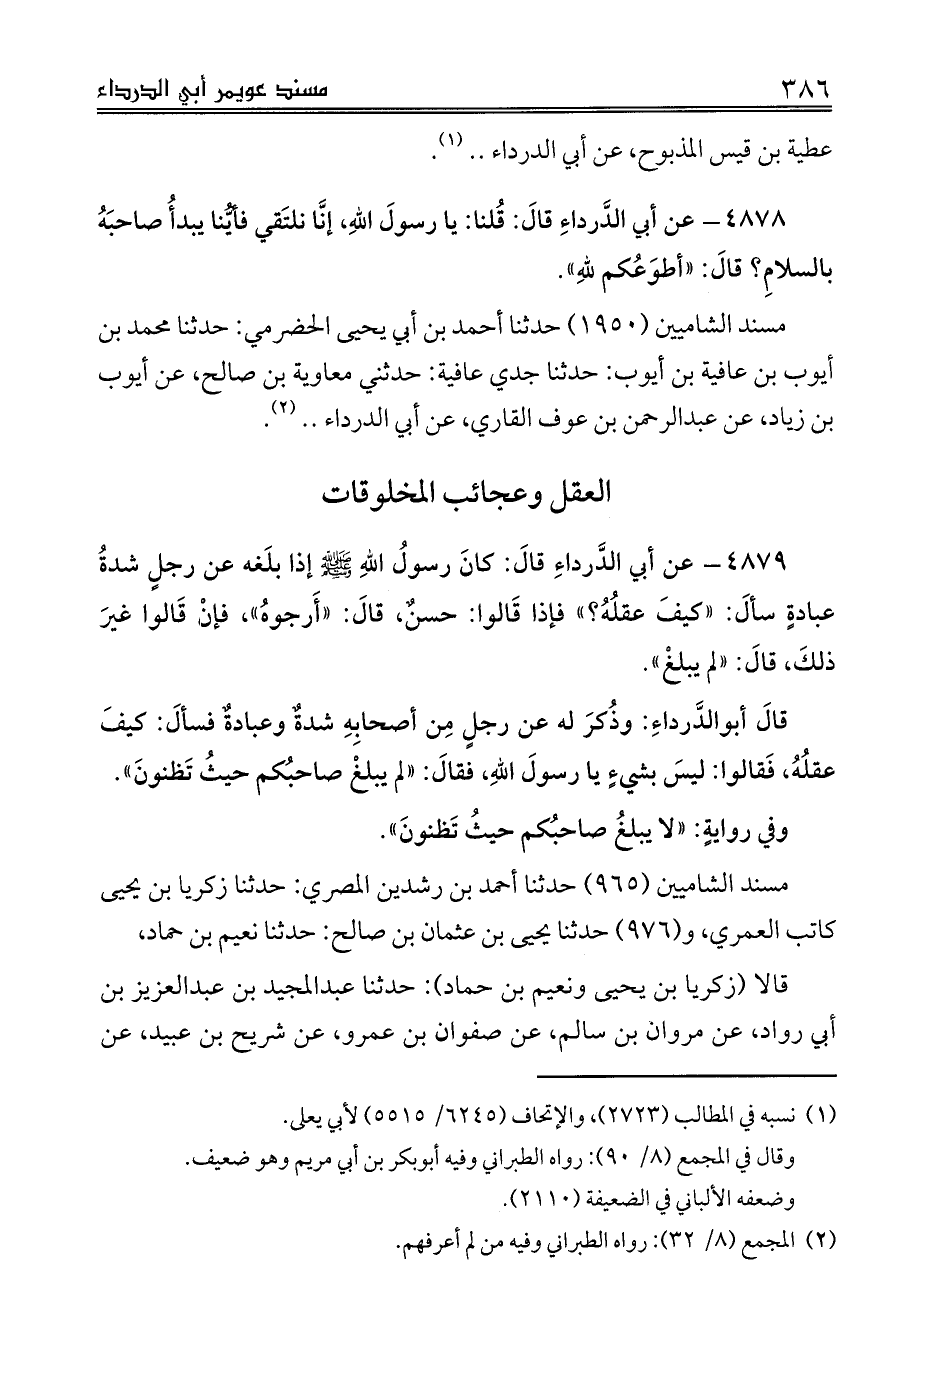 ٣٨٦ مسند عويمر أبي الدرداء
عطية بن قيس المذبوح، عن أبي الدرداء .. (١).
٤٨٧٨ – عن أبي الدَّرداءِ قالَ: قُلنا: يا رسولَ اللهِ، إنَّا نلتَقي فأيُّنا يبدأُ صاحبَهُ
بالسلامِ؟ قالَ: «أطوَعُكم للهِ».
مسند الشاميين (١٩٥٠) حدثنا أحمد بن أبي يحيى الحضرمي: حدثنا محمد بن
أيوب بن عافية بن أيوب: حدثنا جدي عافية: حدثني معاوية بن صالح، عن أيوب
بن زياد، عن عبدالرحمن بن عوف القاري، عن أبي الدرداء .. (٢).
العقل وعجائب المخلوقات
٤٨٧٩ – عن أبي الدَّرداءِ قالَ: كانَ رسولُ اللهِ ﷺ إذا بلَغه عن رجلٍ شدةُ
عبادةٍ سألَ: «كيفَ عقلُهُ؟» فإذا قَالوا: حسنٌ، قالَ: «أَرجوهُ»، فإنْ قَالوا غيرَ
ذلكَ، قالَ: «لم يبلغْ».
قالَ أبوالدَّرداءِ: وذُكرَ له عن رجلٍ مِن أصحابِهِ شدةٌ وعبادةٌ فسألَ: كيفَ
عقلُهُ، فَقالوا: ليسَ بشيءٍ يا رسولَ اللهِ، فقالَ: «لم يبلغْ صاحبُكم حيثُ تَظنونَ».
وفي روايةٍ: «لا يبلغُ صاحبُكم حيثُ تَظنونَ».
مسند الشاميين (٩٦٥) حدثنا أحمد بن رشدين المصري: حدثنا زكريا بن يحيى
كاتب العمري، و(٩٧٦) حدثنا يحيى بن عثمان بن صالح: حدثنا نعيم بن حماد،
قالا (زكريا بن يحيى ونعيم بن حماد): حدثنا عبدالمجيد بن عبدالعزيز بن
أبي رواد، عن مروان بن سالم، عن صفوان بن عمرو، عن شريح بن عبيد، عن
(١) نسبه في المطالب (٢٧٢٣)، والإتحاف (٦٢٤٥/ ٥٥١٥) لأبي يعلى.
وقال في المجمع (٨/ ٩٠): رواه الطبراني وفيه أبوبكر بن أبي مريم وهو ضعيف.
وضعفه الألباني في الضعيفة (٢١١٠).
(٢) المجمع (٨/ ٣٢): رواه الطبراني وفيه من لم أعرفهم.